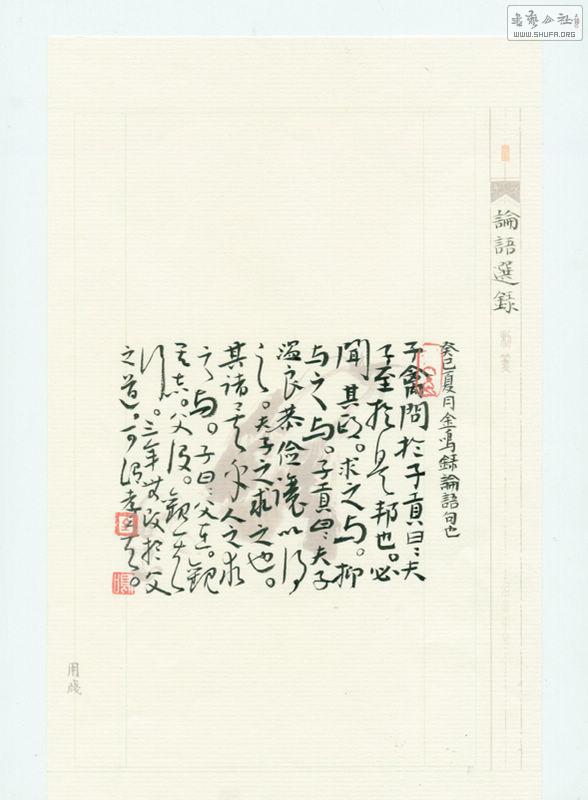 書藝公社
WWW.SHUFA.ORG
論語選錄
癸巳夏月金鳴録論語句也
子禽問於子貢曰:夫
子至於是邦也。必
聞其政。求之与。抑
与之与。子貢曰:夫子
温良恭儉讓以得
之。夫子之求之也。
其諸異乎人之求
之与。子曰:父在。觀
其志。父没。觀其
行。三年無改於父
之道。可謂孝矣。
用牋